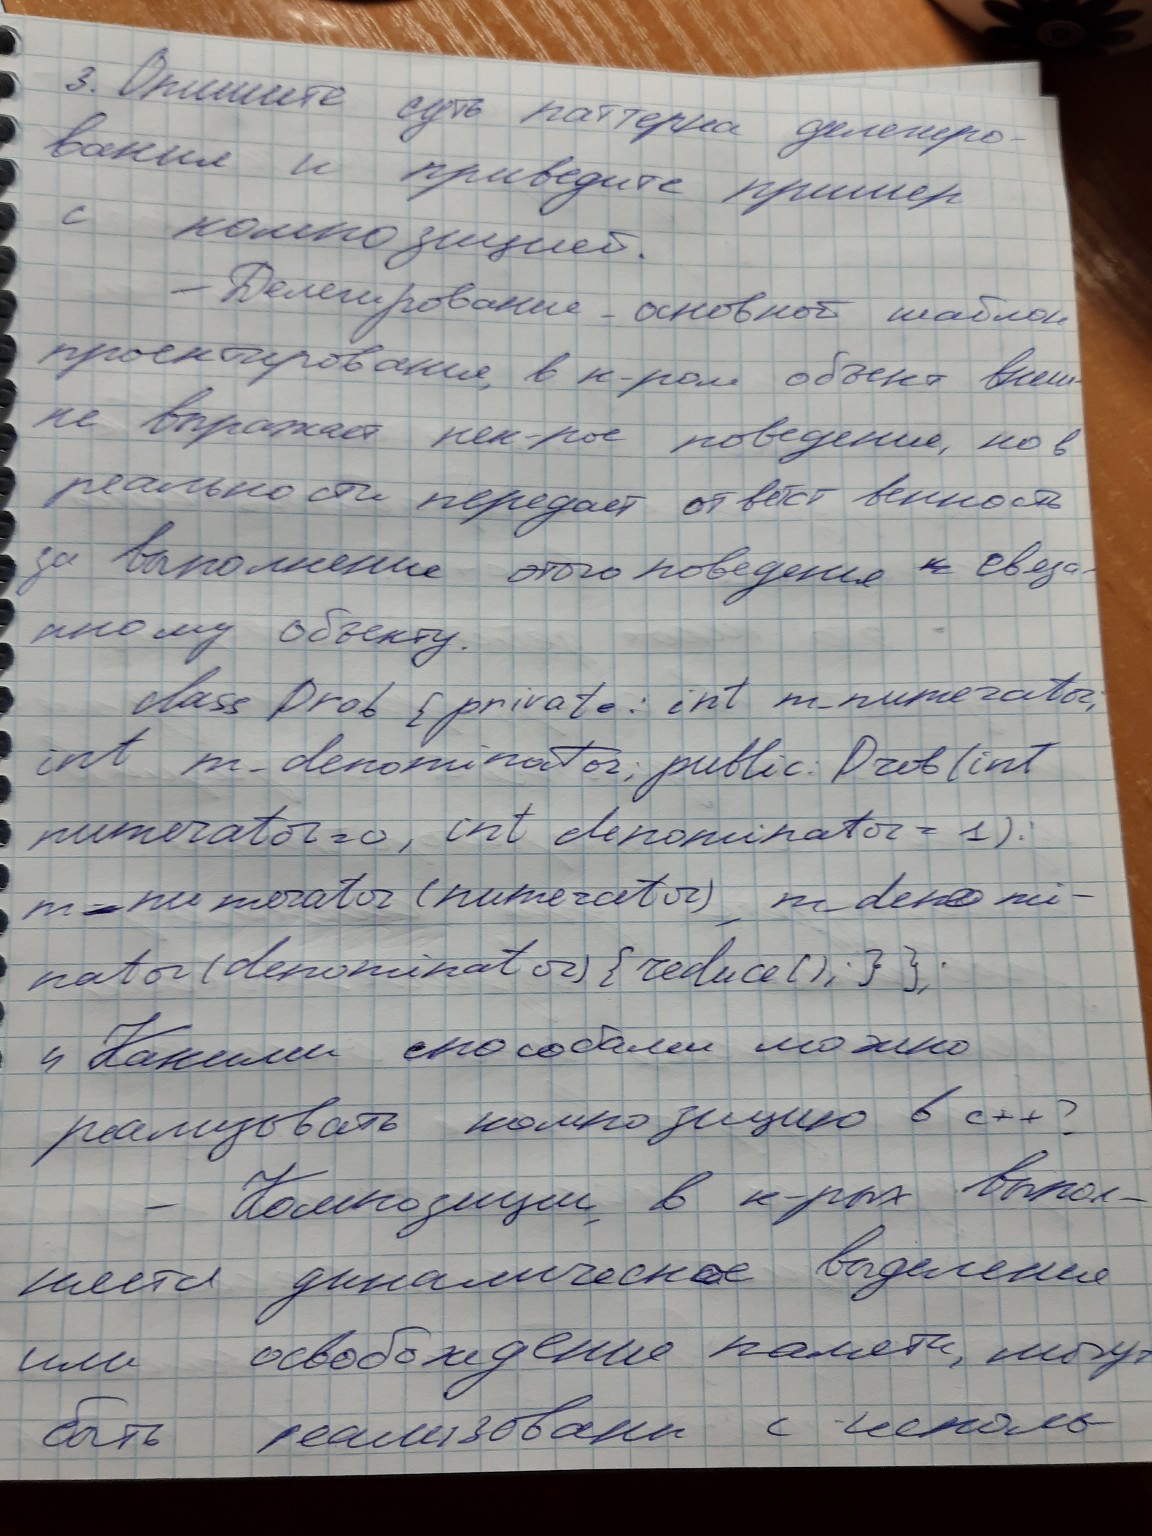 3. Опишите суть паттерна делегиро-
вания и приведите пример
с композицией.
- Делегирование - основной шаблон
проектирования, в к-ром объект внеш-
не выражает нек-рое поведение, но в
реальности передает ответственность
за выполнение этого поведения к связа-
нному объекту.
class Drob { private: int m_numerator;
int m_denominator; public: Drob(int
numerator=0, int denominator=1):
m_numerator(numerator), m_denomi-
nator(denominator){reduce();}};
4 Какими способами можно
реализовать композицию в с++?
- Композиции, в к-рых выпол-
няется динамическое выделение
или освобождение памяти, могут
быть реализованы с исполь-